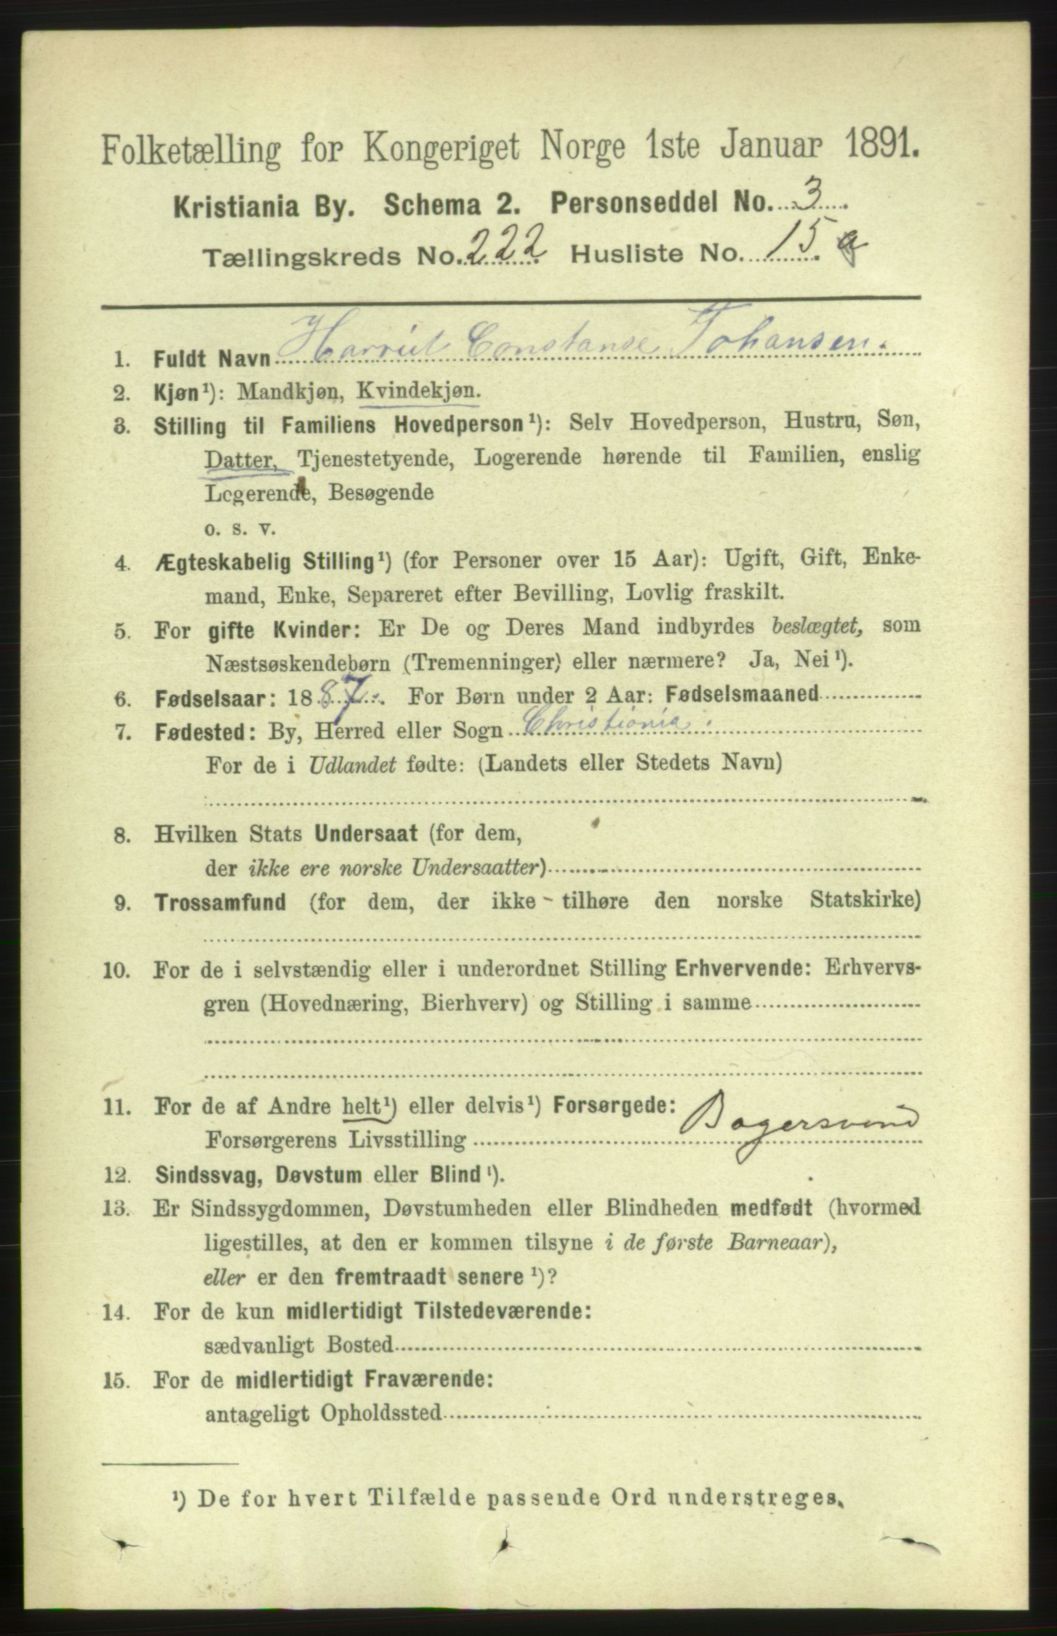 Folketælling for Kongeriget Norge 1ste Januar 1891.
Kristiania By. Schema 2. Personseddel No. 3.
Tællingskreds No. 222 Husliste No. 15 a
1. Fuldt Navn Harriet Constanse Johansen.
2. Kjøn¹): Mandkjøn, Kvindekjøn.
3. Stilling til Familiens Hovedperson¹): Selv Hovedperson, Hustru, Søn,
Datter, Tjenestetyende, Logerende hørende til Familien, enslig
Logerende, Besøgende
o. s. v.
4. Ægteskabelig Stilling¹) (for Personer over 15 Aar): Ugift, Gift, Enke-
mand, Enke, Separeret efter Bevilling, Lovlig fraskilt.
5. For gifte Kvinder: Er De og Deres Mand indbyrdes beslægtet, som
Næstsøskendebørn (Tremenninger) eller nærmere? Ja, Nei¹).
6. Fødselsaar: 1887. For Børn under 2 Aar: Fødselsmaaned
7. Fødested: By, Herred eller Sogn Christiania.
For de i Udlandet fødte: (Landets eller Stedets Navn)
8. Hvilken Stats Undersaat (for dem,
der ikke ere norske Undersaatter)
9. Trossamfund (for dem, der ikke tilhøre den norske Statskirke)
10. For de i selvstændig eller i underordnet Stilling Erhvervende: Erhvervs-
gren (Hovednæring, Bierhverv) og Stilling i samme
11. For de af Andre helt¹) eller delvis¹) Forsørgede:
Forsørgerens Livsstilling Bagersvend
12. Sindssvag, Døvstum eller Blind¹).
13. Er Sindssygdommen, Døvstumheden eller Blindheden medfødt (hvormed
ligestilles, at den er kommen tilsyne i de første Barneaar),
eller er den fremtraadt senere¹)?
14. For de kun midlertidigt Tilstedeværende:
sædvanligt Bosted
15. For de midlertidigt Fraværende:
antageligt Opholdssted
¹) De for hvert Tilfælde passende Ord understreges.